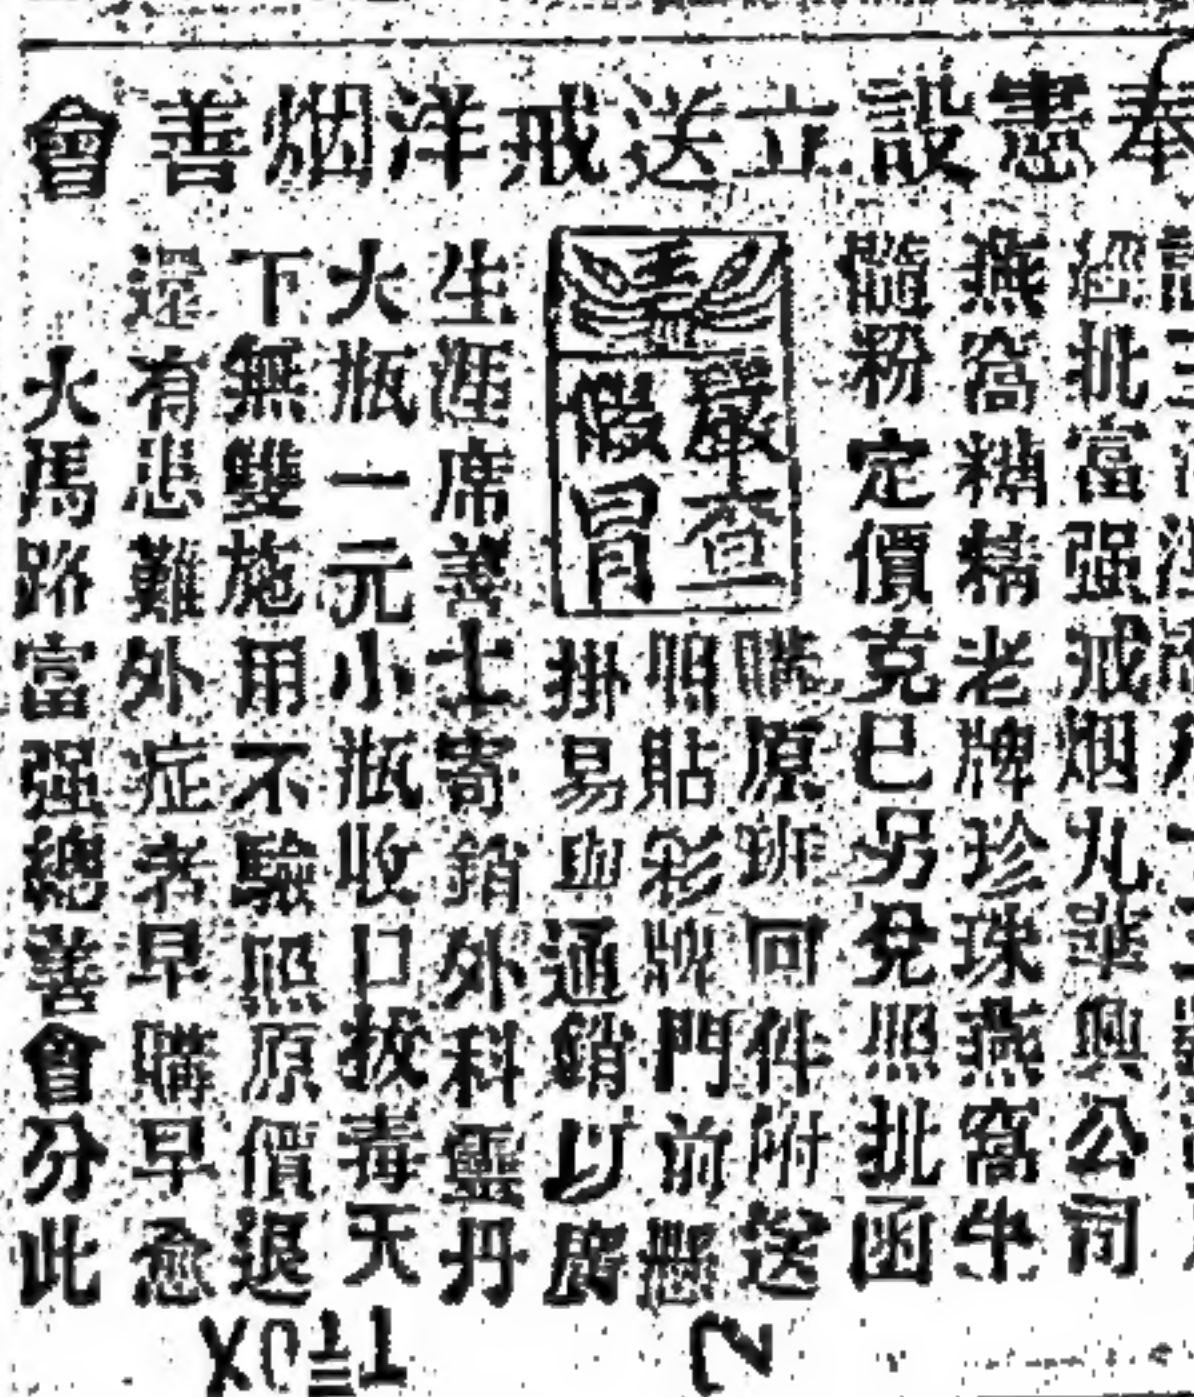 奉憲設立送戒洋烟善會
經批富强戒烟丸華興公司
燕窩糖精老牌珍珠燕窩牛
髓粉定價克已另兌照批函
購原班回件附送
照貼彩牌門前懸
掛易與通銷以廣
嚴查
假冒
生涯席善士寄銷外科靈丹
大瓶一元小瓶收口拔毒天
下無雙施用不驗照原價退
還有患難外症者早購早愈
大馬路富强總善會分此